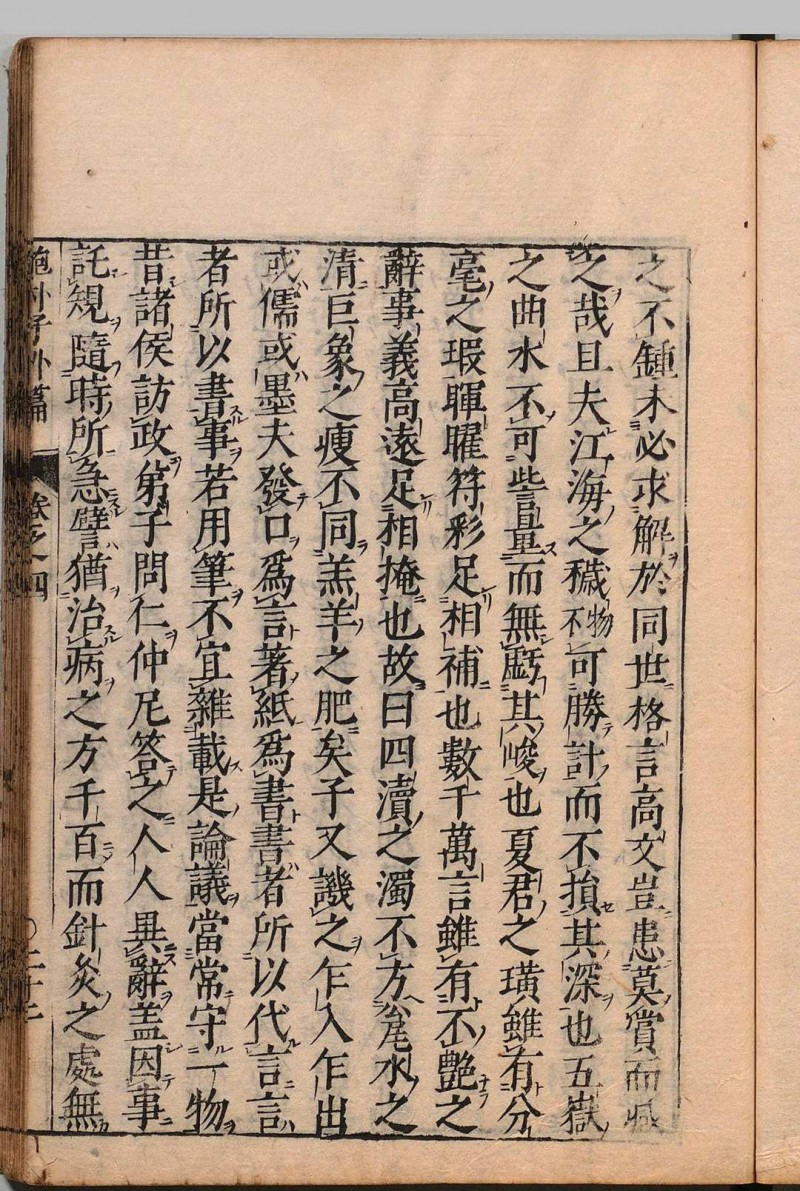 之不鍾未必求解於同世格言高文豈患莫賞而減
之哉且夫江海之穢物不可勝計而不損其深也五嶽
之曲木不可訾量而無虧其峻也夏君之璜雖有分
毫之瑕暉曜符彩足相補也數千萬言雖有不艶之
辭事義高遠足相掩也故曰四瀆之濁不方瓮水之
清巨象之瘦不同羔羊之肥矣子又譏之乍入乍出
或儒或墨夫發口爲言著紙爲書書者所以代言言
者所以書事若用筆不宜雜載是論議當常守一物
昔諸侯訪政第子問仁仲尼答之人人異辭盖因事
託規隨時所急譬猶治病之方千百而針灸之處無
抱朴子外篇 卷之四 〇二十二